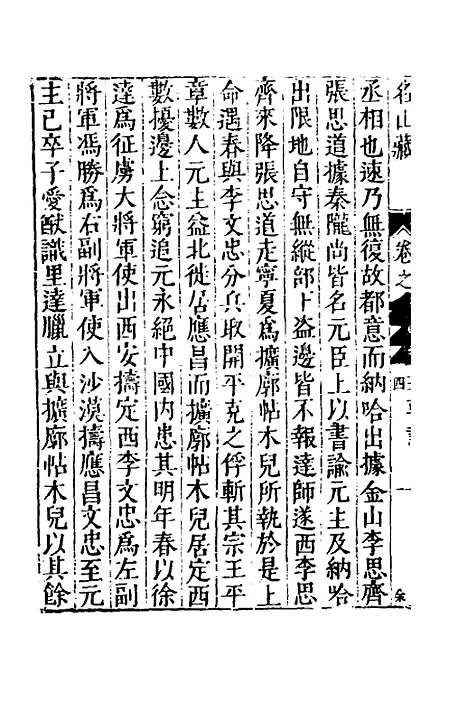 名山藏 卷之 四
丞相也速乃無復故都意而納哈出據金山李思齊
張思道據秦隴尚皆名元臣上以書諭元主及納哈
出限地自守無縱部下盜邊皆不報達師遂西李思
齊來降張思道走寧夏為擴廓帖木兒所執於是上
命遇春與李文忠分兵取開平克之俘斬其宗王平
章數人元主益北徙居應昌而擴廓帖木兒居定西
數擾邊上念窮追元永絕中國內患其明年春以徐
達為征虜大將軍使出西安擣定西李文忠為左副
將軍馮勝為右副將軍使入沙漠擣應昌文忠至元
主已卒子愛猷識里達臘立與擴廓帖木兒以其餘